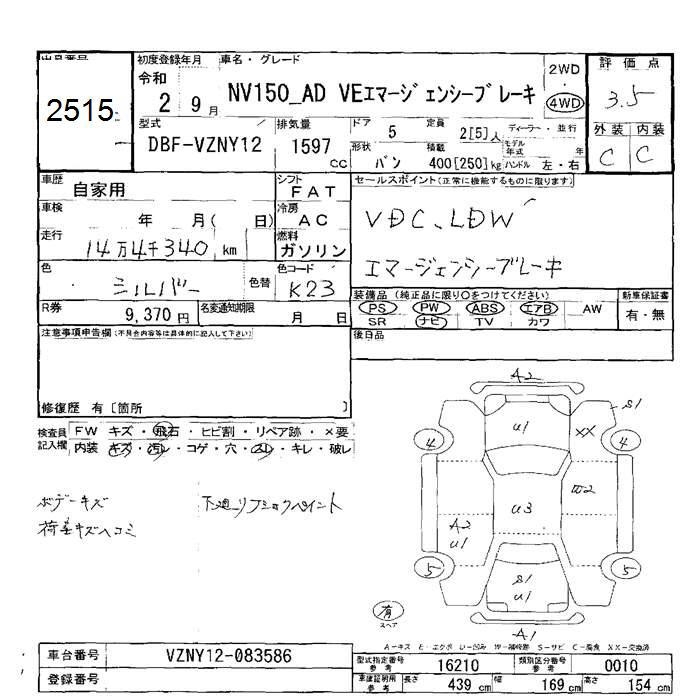 出品番号
2515
初度登録年月
令和
2 9月
車名・グレード
NV150_AD VEエマージェンシーブレーキ
2WD
4WD
評価点
3.5
外装 内装
C C
型式
DBF-VZNY12
排気量
1597
cc
ドア
5
定員
2[5]人
ディーラー・並行
形状
バン
積載
400[250]kg
モデル年式
年
ハンドル 左・右
車歴
自家用
シフト
FAT
車検
年 月( 日)
冷房
AC
走行
14万4千340 km
燃料
ガソリン
色
シルバー
色替
色コード
K23
R券
9,370円
名変通知期限
月 日
セールスポイント(正常に機能するものに限ります)
VDC、LDW
エマージェンシーブレーキ
装備品(純正品に限り○をつけてください)
PS PW ABS エアB AW
SR ナビ TV カワ
新車保証書
有・無
後日品
注意事項申告欄(不具合内容等は具体的に記入して下さい)
修復歴 有〔箇所 〕
検査員
記入欄
FW キズ・飛石・ヒビ割・リペア跡・×要
内装 キズ・汚レ・コゲ・穴・スレ・キレ・破レ
ボデーキズ
荷室キズヘコミ
A2
S1
U1
XX
4
4
W2
U3
A2
U1
5
5
S1
U1
A1
有
スペア
A-キズ E-エクボ U-凹み W-補修跡 S-サビ C-腐食 XX-交換済
車台番号
VZNY12-083586
登録番号
型式指定番号
参考
16210
類別区分番号
参考
0010
車庫証明用
参考
長さ 439 cm 幅 169 cm 高さ 154 cm